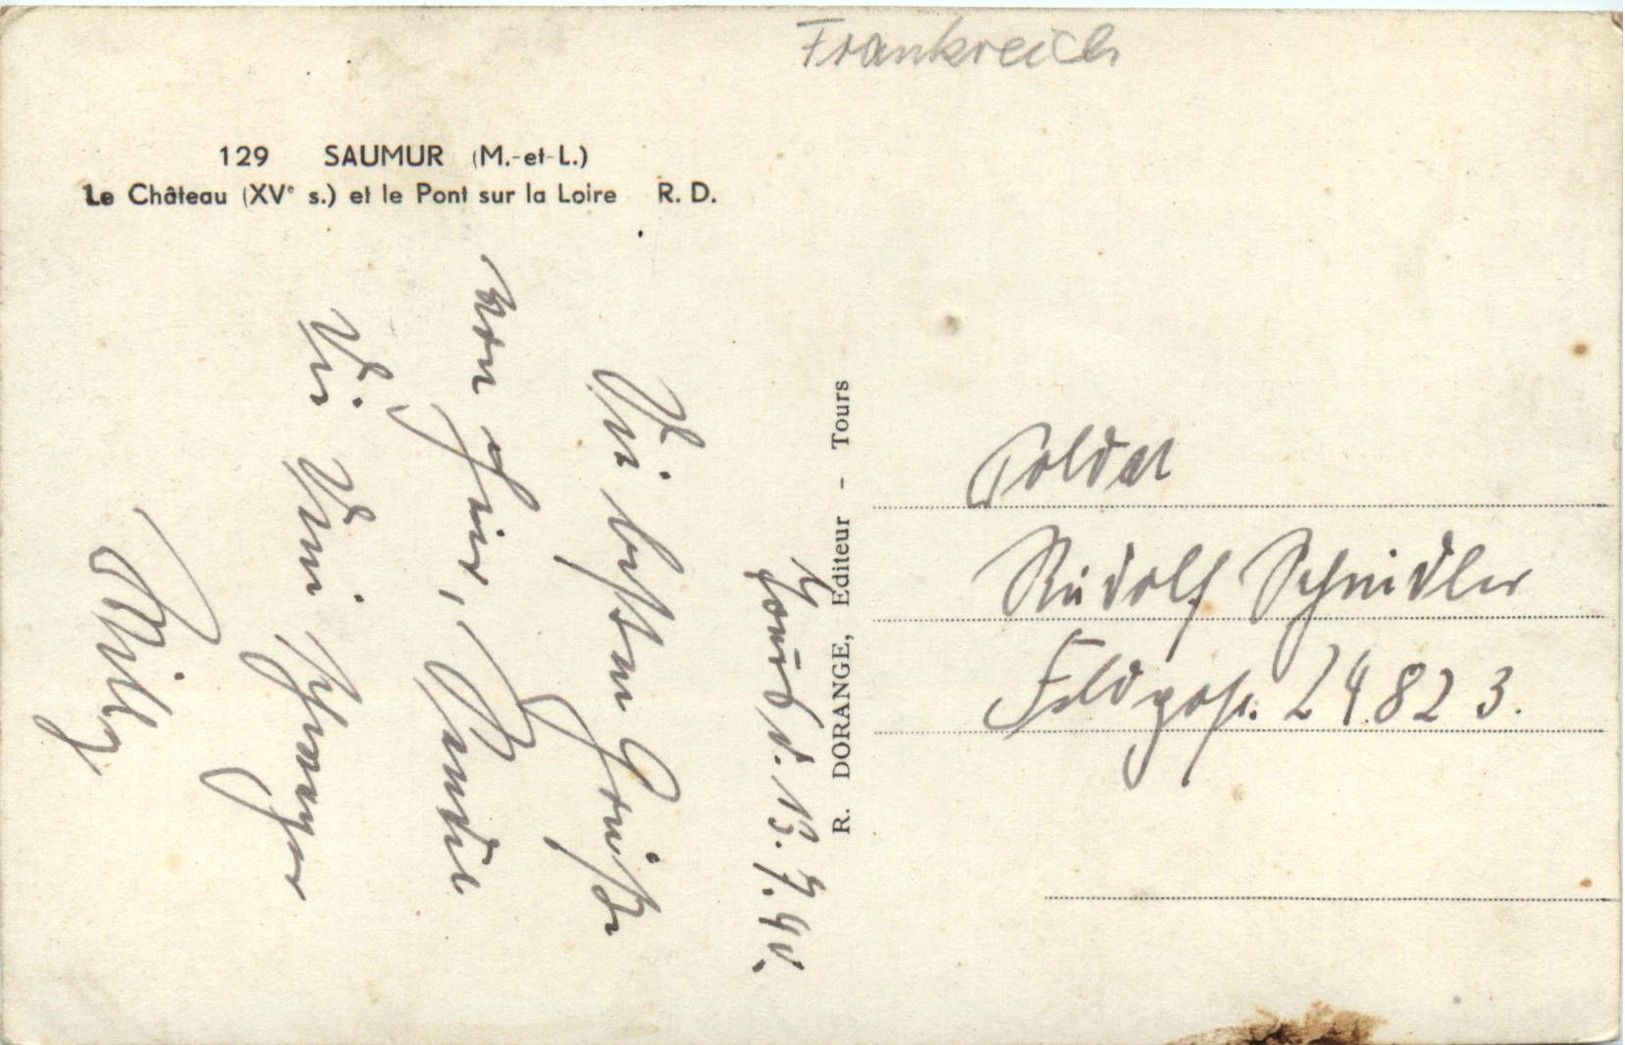 Frankreich
129 SAUMUR (M.-et-L.)
Le Château (XVe s.) et le Pont sur la Loire R. D.
R. DORANGE, Editeur - Tours
d. 13.7.40.
Die besten Grüße
von hier, sendet
Dir Dein Schwager
Willy
Soldat
Rudolf Schnidler
Feldpost. 24823.